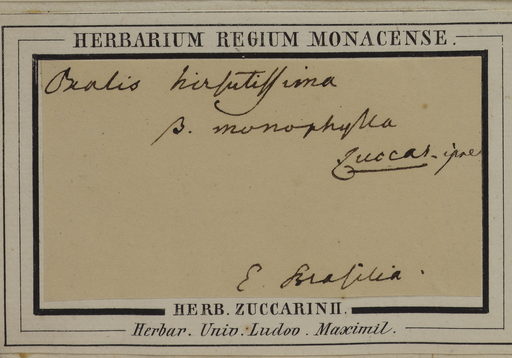 HERBARIUM REGIUM MONACENSE.
Oxalis hirsutissima
β. monophylla
Zuccar. ipse
E Brasilia.
HERB. ZUCCARINII.
Herbar. Univ. Ludov. Maximil.